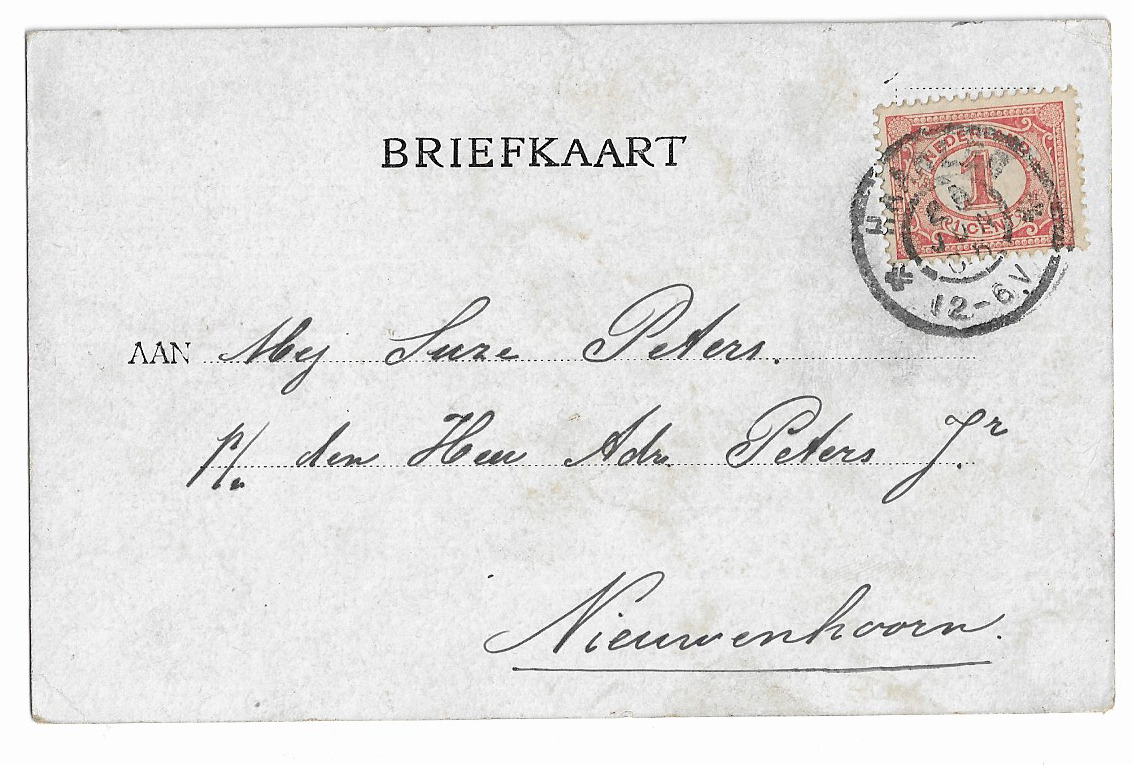 BRIEFKAART
1
CENT
12-6V
AAN Mej Suze Peters.
p/a den Heer Adr. Peters Jr.
Nieuwenhoorn.